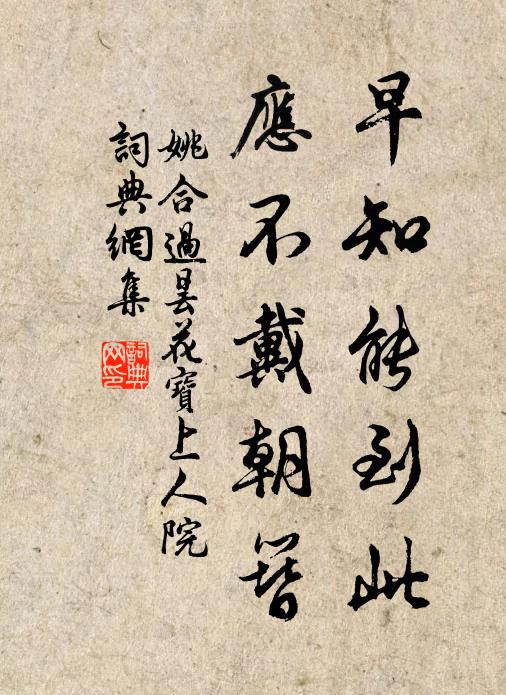 早知能到此
應不戴朝簪
姚合過曇花寶上人院
詞典網集
詞典网印